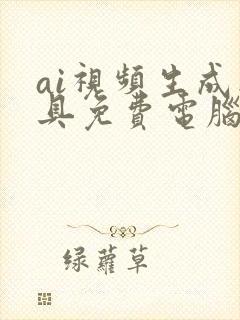 ai視頻生成
具免費電腦
绿蘿草